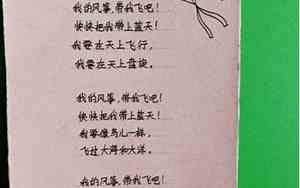 我的风筝,带我飞吧!
快快把我带上蓝天!
我要在天上飞行,
我要在天上盘旋。
我的风筝,带我飞吧!
快快把我带上蓝天!
我要像鸟儿一样,
飞过大海和大洋。
我的风筝,带我飞吧!